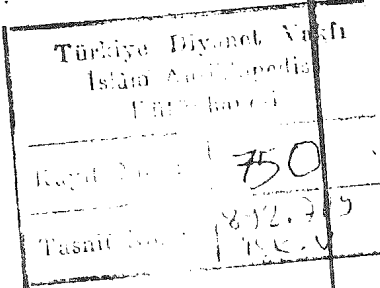 Türkiye Diyanet Vakfı
İslâm Ansiklopedisi
Kütüphanesi
Kayıt No : 750
Tasnif No :